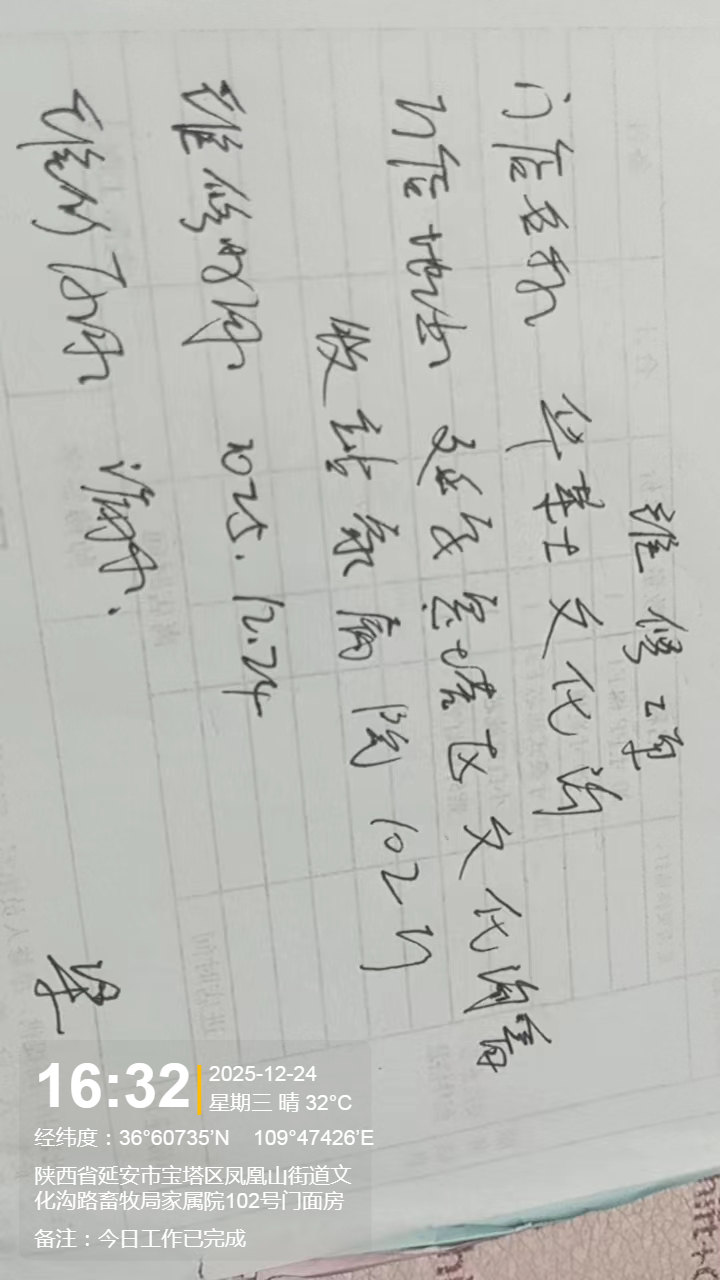 维修工单
门店名称 华莱士文化沟
门店地址 延安宝塔区文化沟畜
牧站家属院102门
维修时间 2025.12.24
维修
16:32
2025-12-24
星期三 晴 32°C
经纬度：36°60735'N 109°47426'E
陕西省延安市宝塔区凤凰山街道文
化沟路畜牧局家属院102号门面房
备注：今日工作已完成